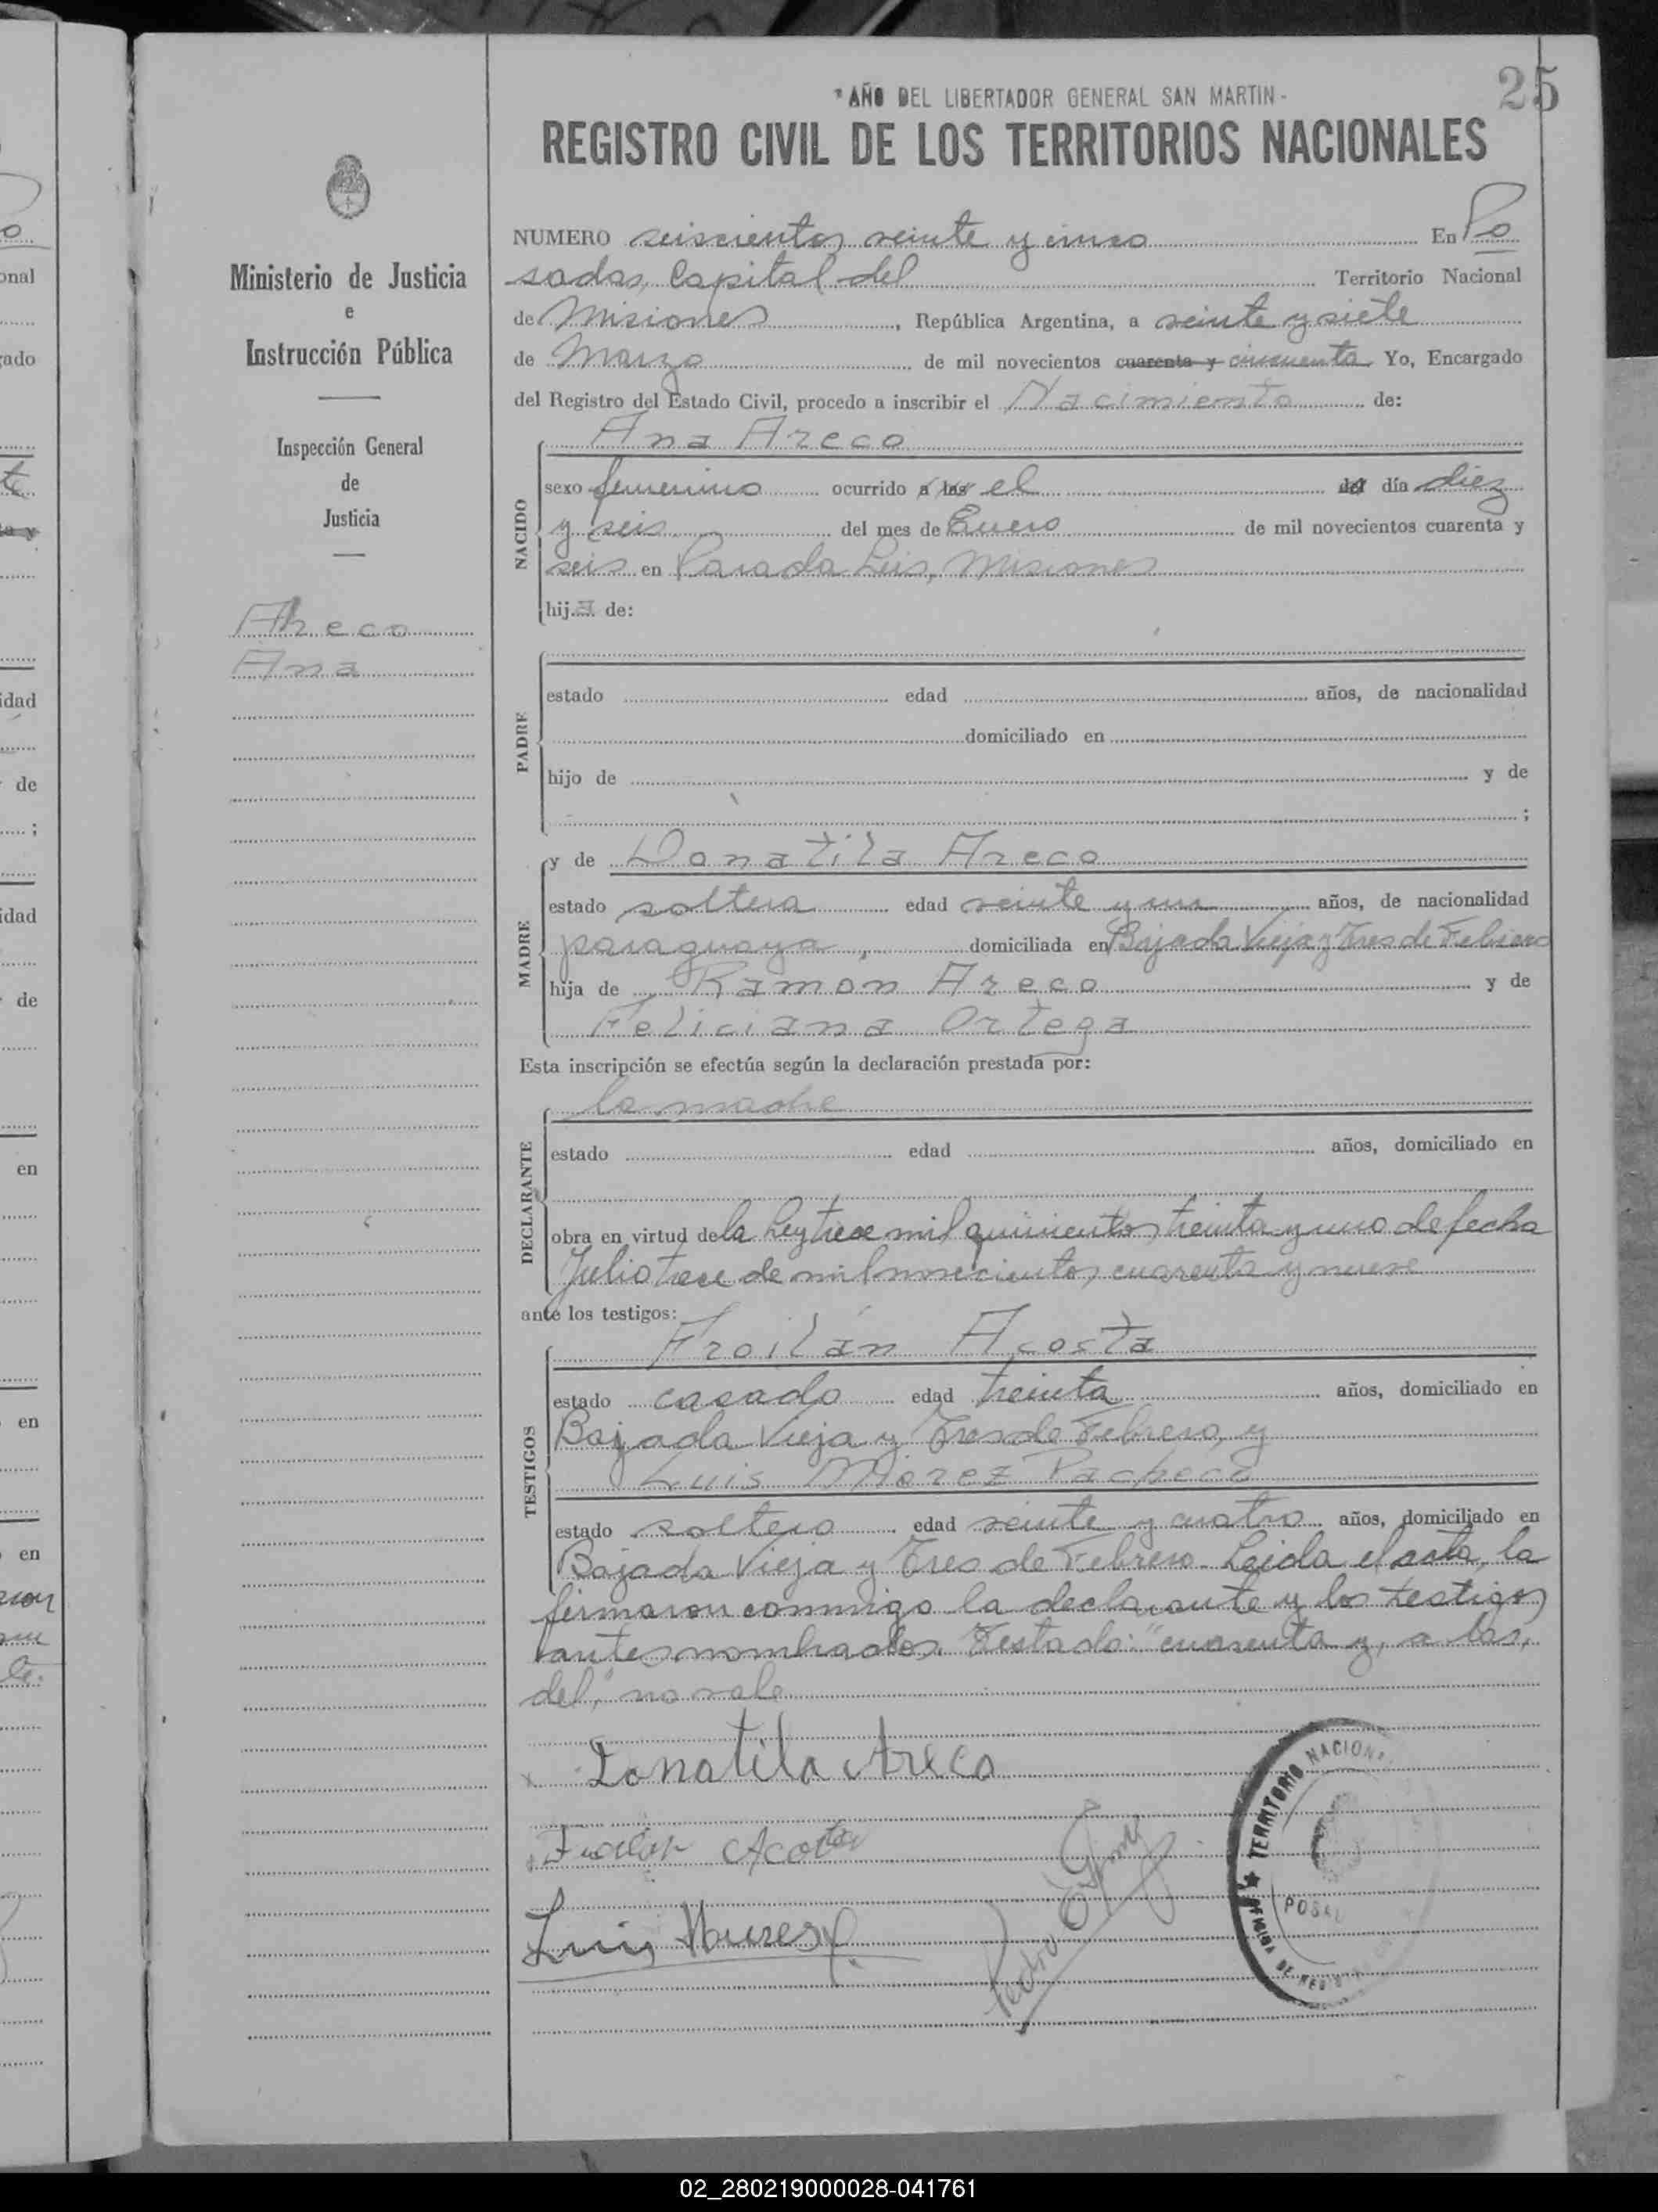 25
"AÑO DEL LIBERTADOR GENERAL SAN MARTIN-
REGISTRO CIVIL DE LOS TERRITORIOS NACIONALES
Ministerio de Justicia
e
Instrucción Pública
Inspección General
de
Justicia
Areco
Ana
NUMERO seiscientos veinte y cinco En Po
sadas, Capital del Territorio Nacional
de Misiones, República Argentina, a veinte y siete
de Marzo de mil novecientos cuarenta y cincuenta Yo, Encargado
del Registro del Estado Civil, procedo a inscribir el Nacimiento de:
Ana Areco
NACIDO
sexo femenino ocurrido a las el del día diez
y seis del mes de Enero de mil novecientos cuarenta y
seis en Parada Leis, Misiones
hija de:
PADRE
estado edad años, de nacionalidad
domiciliado en
hijo de y de
;
MADRE
y de Donatila Areco
estado soltera edad veinte y un años, de nacionalidad
paraguaya, domiciliada en Bajada Vieja y Tres de Febrero
hija de Ramon Areco y de
Feliciana Ortega
Esta inscripción se efectúa según la declaración prestada por:
DECLARANTE
la madre
estado edad años, domiciliado en
obra en virtud de la Ley trece mil quinientos treinta y uno de fecha
Julio trece de mil novecientos cuarenta y nueve
ante los testigos:
TESTIGOS
Froilán Acosta
estado casado edad treinta años, domiciliado en
Bajada Vieja y Tres de Febrero, y
Luis Pacheco
estado soltero edad veinte y cuatro años, domiciliado en
Bajada Vieja y Tres de Febrero. Leida el acta, la
firmaron conmigo la declarante y los testigos
antes nombrados. Testado: "cuarenta y, a las,
del," no vale
Donatila Areco
Acosta
Luis
Pedro
TERRITORIO NACIONAL
POSA
02_280219000028-041761